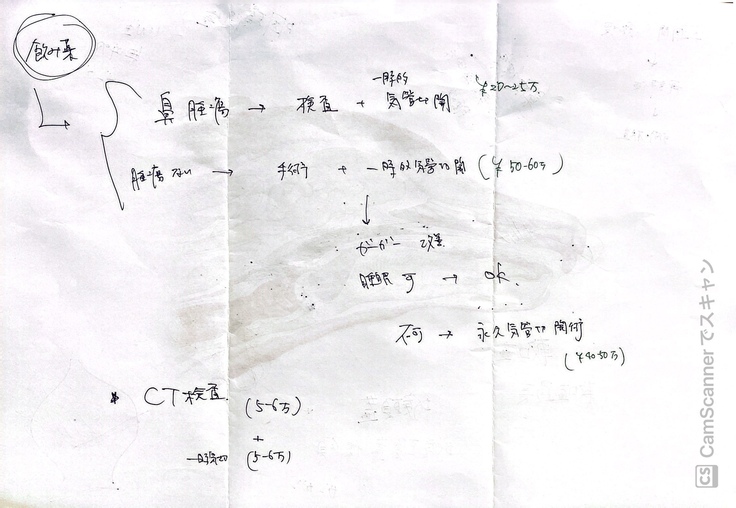 飲み薬
鼻腫瘍 → 検査 + 一時的気管切開 ¥20~25万
腫瘍ない → 手術 + 一時的気管切開 (¥50-60万)
↓
ガーガー 改善
睡眠可 → ok.
不可 → 永久気管切開術
(¥40-50万)
CT検査 (5-6万)
+
一時気切 (5-6万)
CS CamScannerでスキャン